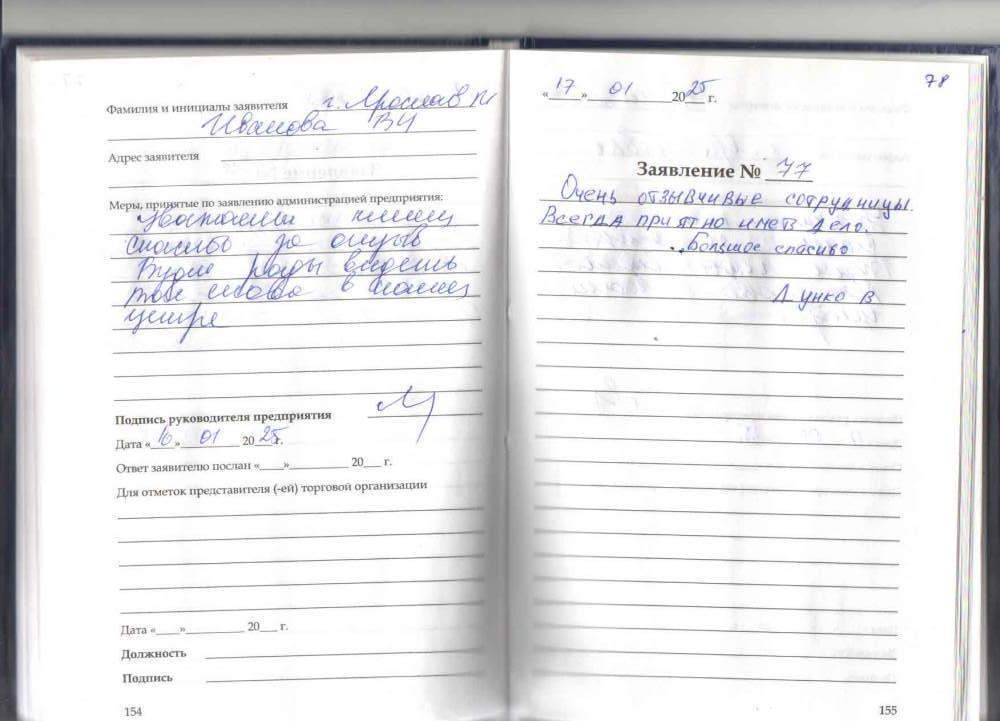 Фамилия и инициалы заявителя г. Ярославль
Иванова ВЧ
Адрес заявителя
Меры, принятые по заявлению администрацией предприятия:
спасибо за отзыв
Будем рады видеть
Вас снова в нашем
центре
Подпись руководителя предприятия
Дата «16» 01 2025г.
Ответ заявителю послан «___»_________ 20___ г.
Для отметок представителя (-ей) торговой организации
Дата «___»_________ 20___ г.
Должность
Подпись
154
78
«17» 01 2025 г.
Заявление № 77
Очень отзывчивые сотрудницы.
Всегда приятно иметь дело.
Большое спасибо
Дунко В
155